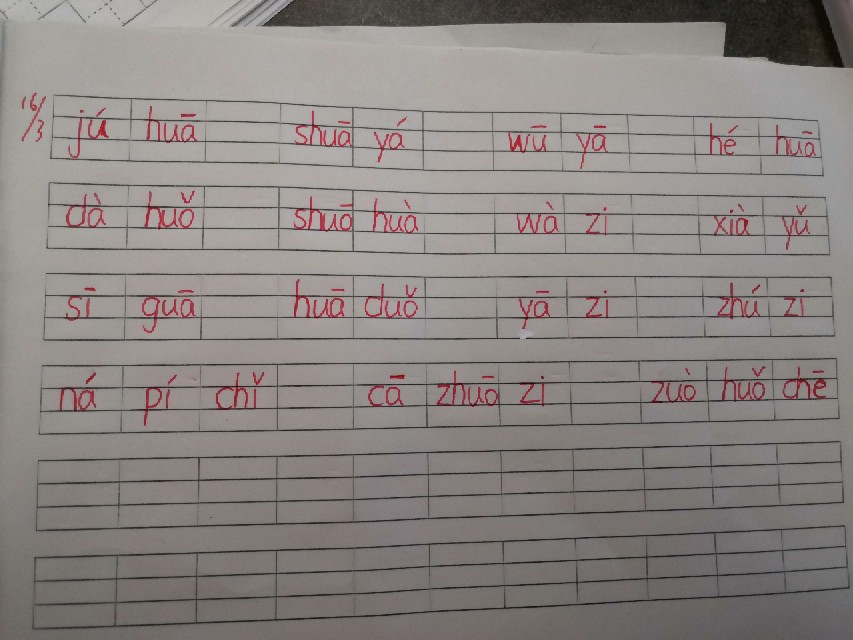 16/3
jú huā shuā yá wū yā hé huā
dà huǒ shuō huà wà zi xià yǔ
sī guā huā duǒ yā zi zhú zi
ná pí chǐ cā zhuō zi zuò huǒ chē